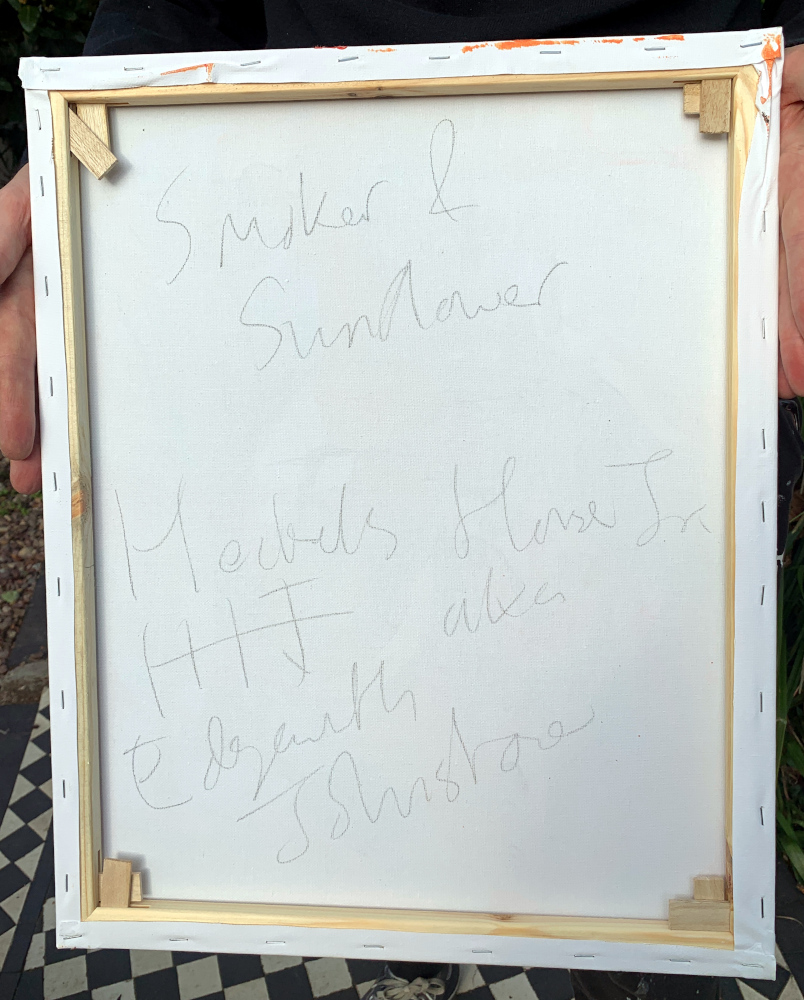 Smoker &
Sunflower
Heckels Horse Jr
HHJ aka
Edgeworth
Johnstone